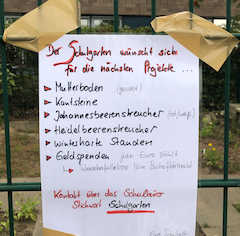 Der Schulgarten wünscht sich
für die nächsten Projekte ...
Mutterboden (gesiebt)
Kantsteine
Johannesbeerenstreucher (rot/weiß)
Heidelbeerenstreucher
winterharte Stauden
Geldspenden jeder Euro zählt
Kontakt über das Schulbüro
Stichwort Schulgarten